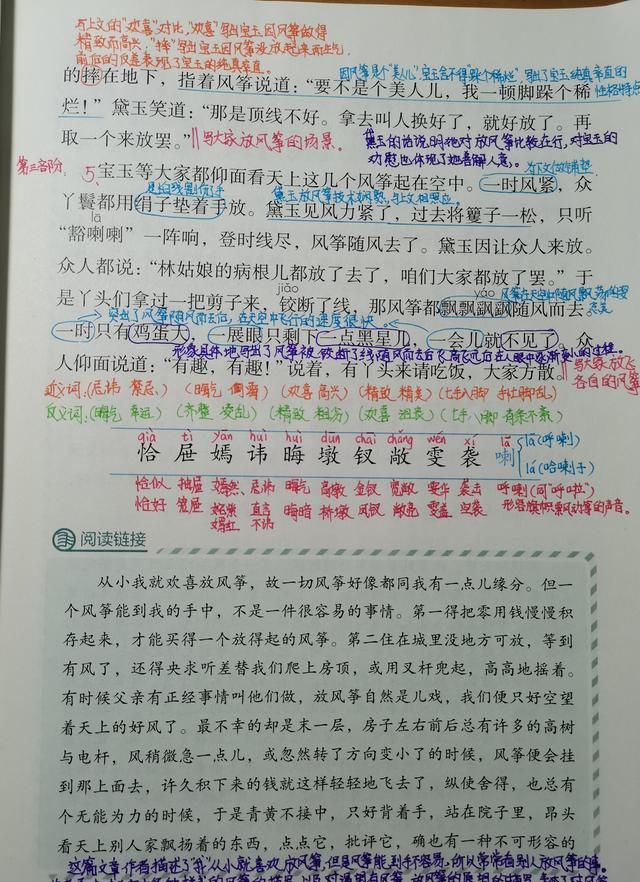 与上文的“欢喜”对比，“欢喜”写出宝玉因风筝做得
精致而高兴，“摔”写出宝玉因风筝没放起来而生气，
前后的反差表现了宝玉的纯真率直。
因风筝是个“美人儿”，宝玉舍不得“跺个稀烂”，写出了宝玉纯真率直的
性格特点
的摔在地下，指着风筝说道：“要不是个美人儿，我一顿脚跺个稀
烂！”黛玉笑道：“那是顶线不好。拿去叫人换好了，就好放了。再
取一个来放罢。”
写大家放风筝的场景。
黛玉的话说明她对放风筝比较在行，对宝玉的
劝慰也体现了她善解人意。
第三部分
为下文做铺垫
5、宝玉等大家都仰面看天上这几个风筝起在空中。一时风紧，众
是怕线割伤手
黛玉放风筝技术娴熟，与上文相照应。
丫鬟都用绢子垫着手放。黛玉见风力紧了，过去将籰子一松，只听
lā
“豁喇喇”一阵响，登时线尽，风筝随风去了。黛玉因让众人来放。
众人都说：“林姑娘的病根儿都放了去了，咱们大家都放了罢。”于
jiǎo
yáo
风筝在天空中随风飘荡的姿态美
是丫头们拿过一把剪子来，铰断了线，那风筝都飘飘飖飖随风而去。
突出了风筝随风而去后，在天空中飞行的速度很快。
一时只有鸡蛋大，一展眼只剩下一点黑星儿，一会儿就不见了。众
形象具体地写出了风筝被铰断了线，随风而去后飞高飞远后在人眼中逐渐变小的过程。
人仰面说道：“有趣，有趣！”说着，有丫头来请吃饭，大家方散。
写大家放飞
各自的风筝
近义词：（忌讳 禁忌）（晦气 倒霉）（欢喜 高兴）（精致 精美）（七手八脚 手忙脚乱）
反义词：（晦气 幸运）（齐整 凌乱）（精致 粗劣）（欢喜 沮丧）（七手八脚 有条不紊）
qià tì yān huì huì dūn chāi chǎng wén xí lā
恰 屉 嫣 讳 晦 墩 钗 敞 雯 袭 喇
lā（呼喇）
lá（哈喇子）
恰似 抽屉 嫣然 忌讳 晦气 高墩 金钗 宽敞 雯华 袭击 呼喇（同“呼啦”）
恰好 笼屉 直言不讳 晦暗 桥墩 凤钗 敞亮 空袭 形容旗帜飘动等的声音。
嫣红
阅读链接
从小我就欢喜放风筝，故一切风筝好像都同我有一点儿缘分。但一
个风筝能到我的手中，不是一件很容易的事情。第一得把零用钱慢慢积
存起来，才能买得一个放得起的风筝。第二住在城里没地方可放，等到
有风了，还得央求听差替我们爬上房顶，或用叉杆兜起，高高地摇着。
有时候父亲有正经事情叫他们做，放风筝自然是儿戏，我们便只好空望
着天上的好风了。最不幸的却是末一层，房子左右前后总有许多的高树
与电杆，风稍微急一点儿，或忽然转了方向变小了的时候，风筝便会挂
到那上面去，许久积下来的钱就这样轻轻地飞去了，纵使舍得，也总有
个无能为力的时候，于是青黄不接中，只好背着手，站在院子里，昂头
看天上别人家飘扬着的东西，点点它，批评它，确也有一种不可形容的
这篇文章作者描述了“我”从小就喜欢放风筝，但是风筝能到手不容易，所以常常看别人放风筝的事。